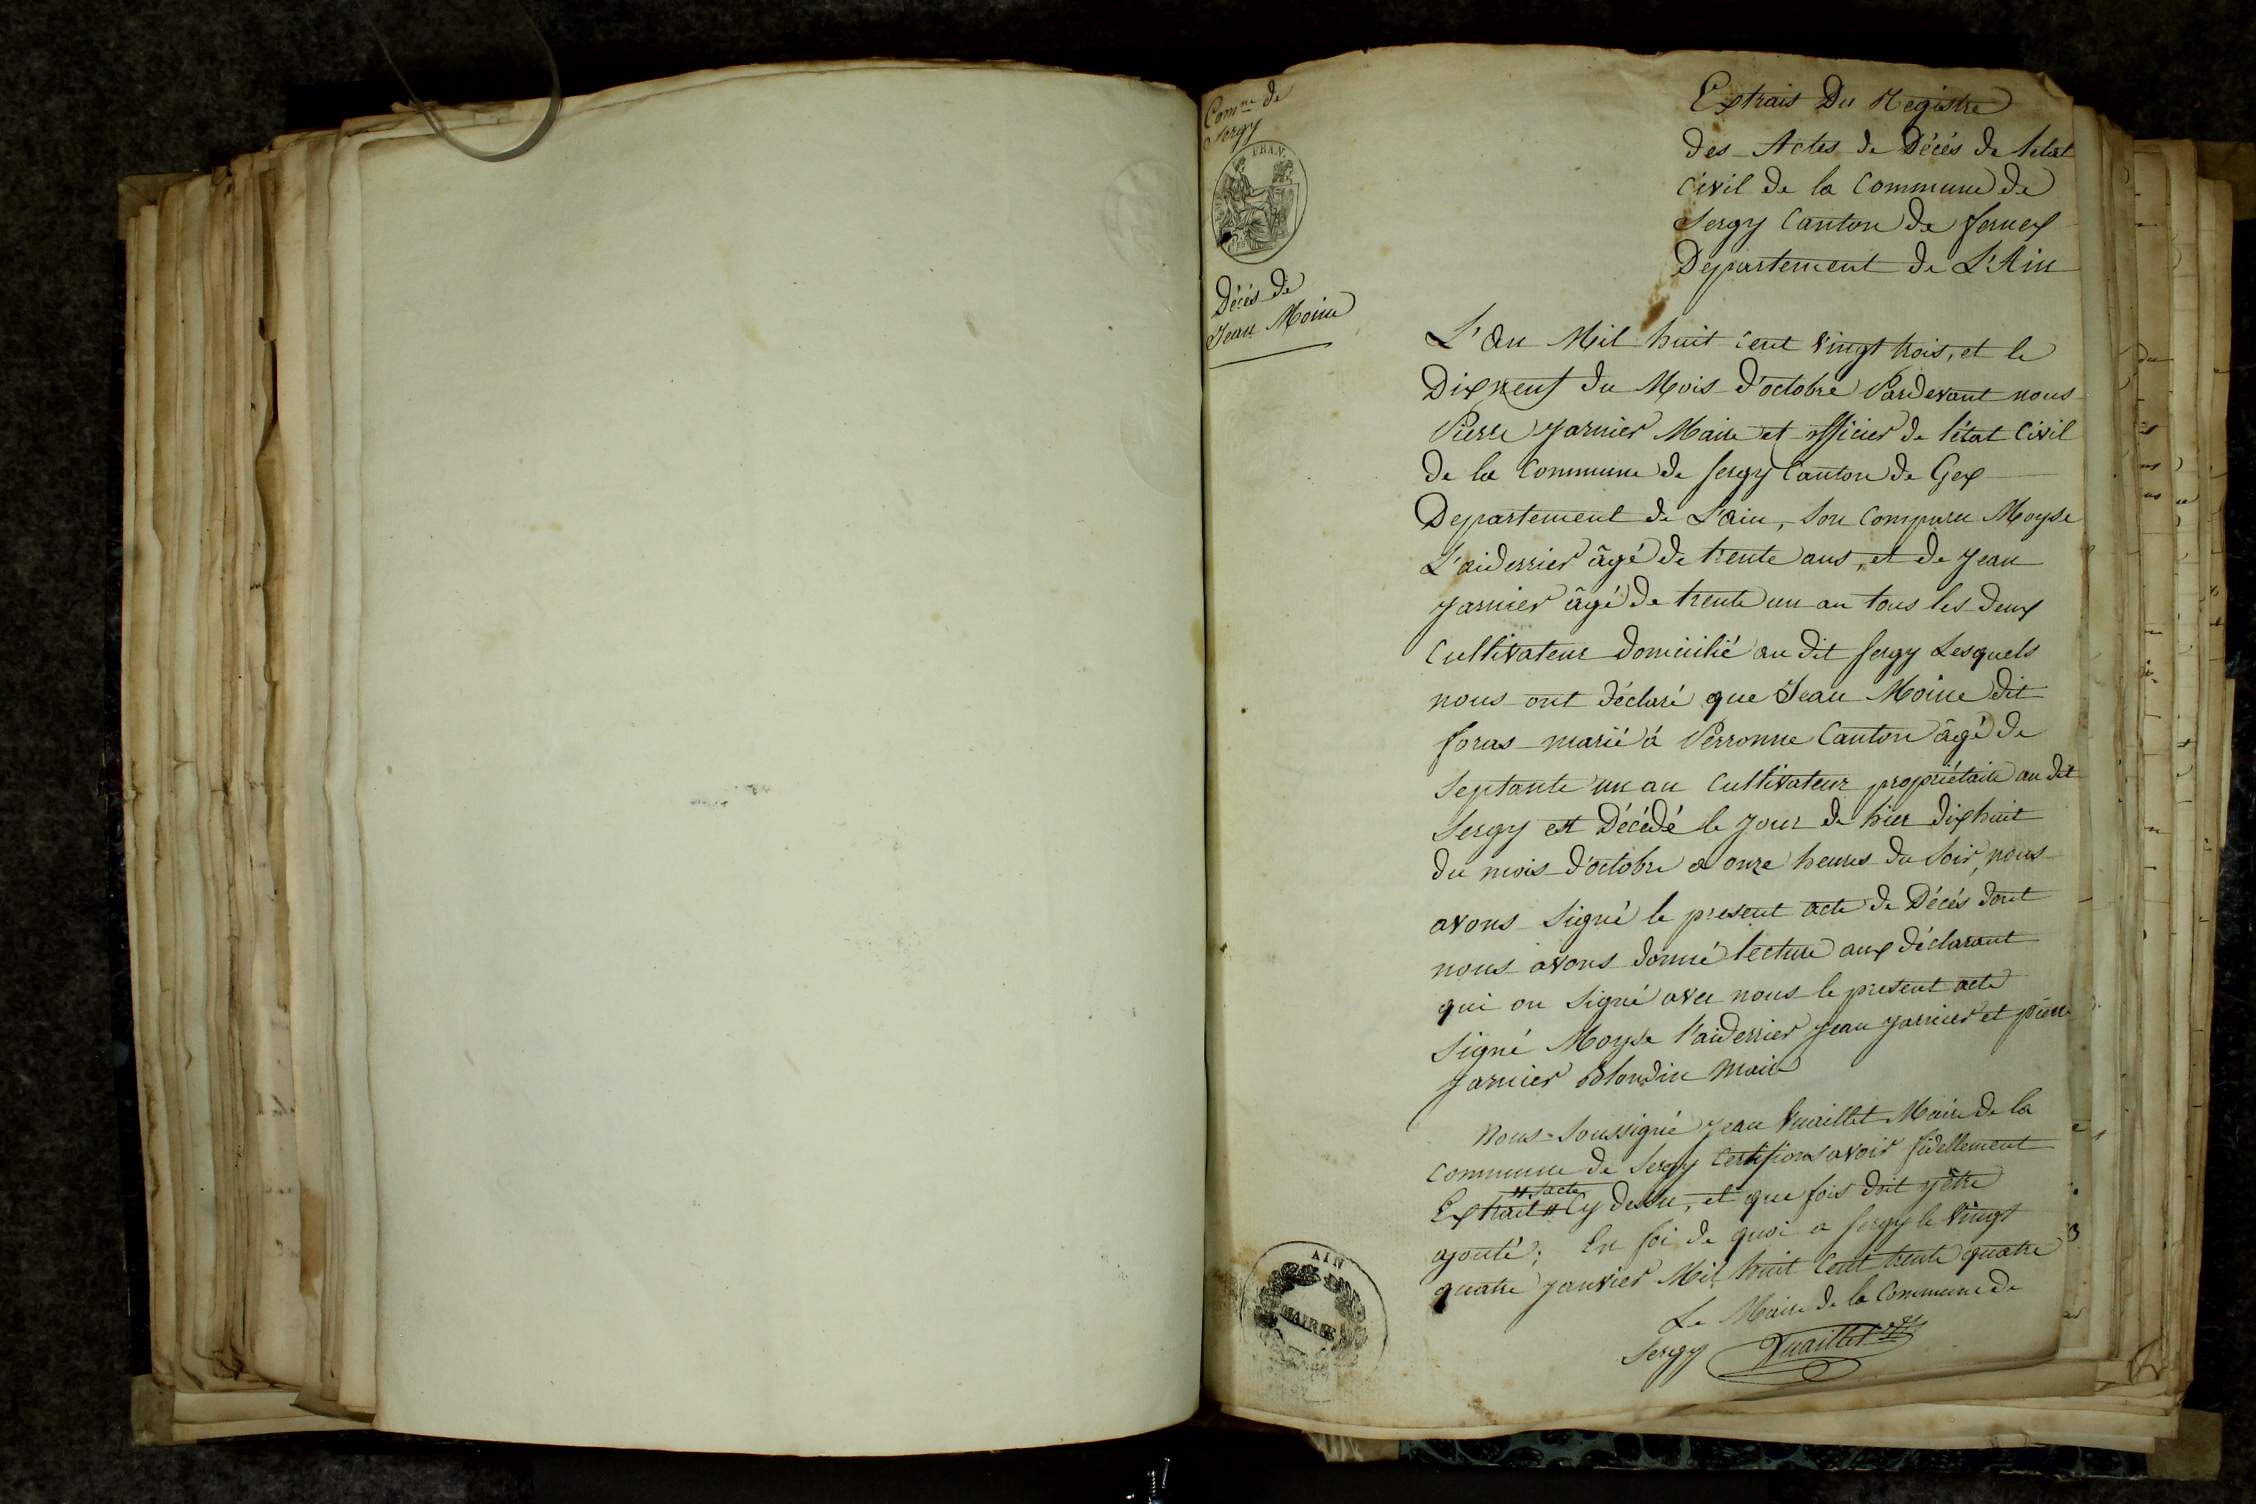 Com.ne de
Sergy
FRAN.
Décés de
Jean Moine
Extrais Du Registre
des Actes de Décés de letat
Civil de la Commune de
Sergy Canton de fernex
Departement de L'Ain
L'an Mil huit Cent vingt trois, et le
Dixneuf du Mois d'octobre Pardevant nous
Pierre Jarnier Maire et officier de l'état Civil
de la Commune de Sergy Canton de Gex
Departement de L'ain, Son Comparu Moyse
L'aiderrier âgé de trente ans, et de Jean
Jarnier âgé de trente un an tous les deux
Cultivateur domicilié au dit Sergy Lesquels
nous ont déclaré que Jean Moine dit
foras marié á Perronne Canton âgé de
Septante un an Cultivateur propriétaire au dit
Sergy est Décédé le jour de hier dixhuit
du mois d'octobre a onze heures du Soir, nous
avons Signé le present acte de Décés dont
nous avons donné lecture aux déclarant
qui on Signé avec nous le present acte
Signé Moyse l'aiderrier Jean Jarnier et pierre
Jarnier Blondin Maire
Nous Soussigné Jean Vuaillet Maire de la
Commune de Sergy Certifions avoir fidellement
# l'acte
Extrait # Cy dessu, et que fois doit yêtre
ajouté; En foi de quoi a Sergy le vingt
quatre Janvier Mil huit Cent trente quatre
Le Maire de la Commune de
Sergy Vuaillet
AIN
MAIRIE